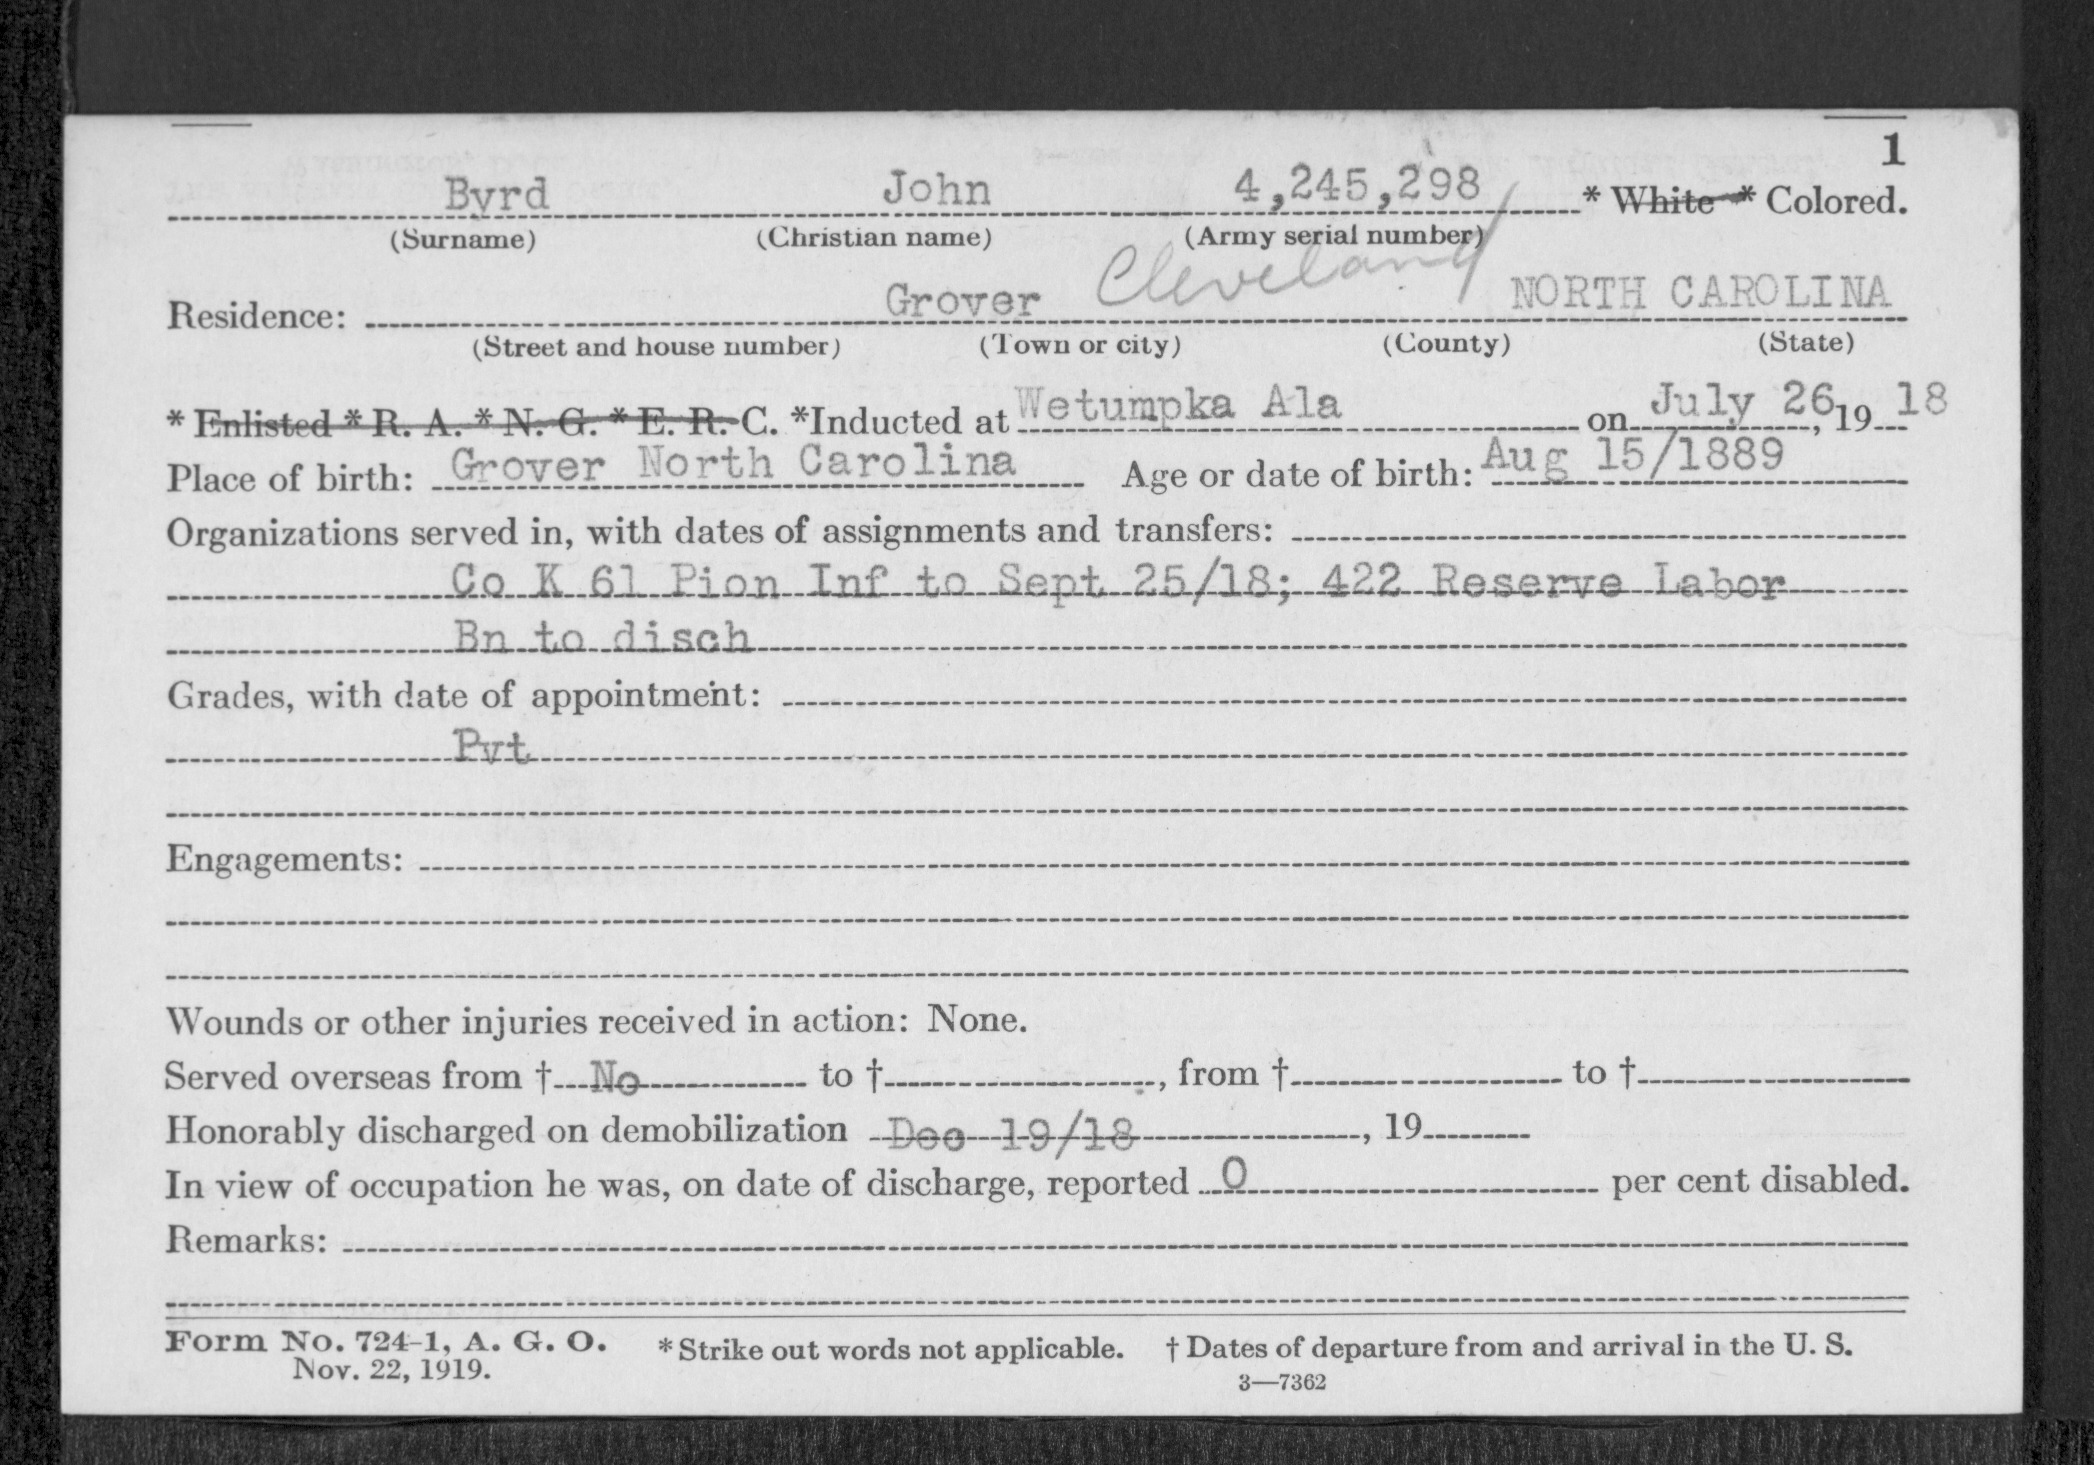 1
Byrd John 4,245,298 * White * Colored.
(Surname) (Christian name) (Army serial number)
Residence: Grover Cleveland NORTH CAROLINA
(Street and house number) (Town or city) (County) (State)
* Enlisted * R. A. * N. G. * E. R. C. *Inducted at Wetumpka Ala on July 26, 19 18
Place of birth: Grover North Carolina Age or date of birth: Aug 15/1889
Organizations served in, with dates of assignments and transfers:
Co K 61 Pion Inf to Sept 25/18; 422 Reserve Labor
Bn to disch
Grades, with date of appointment:
Pvt
Engagements:
Wounds or other injuries received in action: None.
Served overseas from † No to † , from † to †
Honorably discharged on demobilization Dec 19/18 , 19
In view of occupation he was, on date of discharge, reported 0 per cent disabled.
Remarks:
Form No. 724-1, A. G. O. * Strike out words not applicable. † Dates of departure from and arrival in the U. S.
Nov. 22, 1919. 3—7362